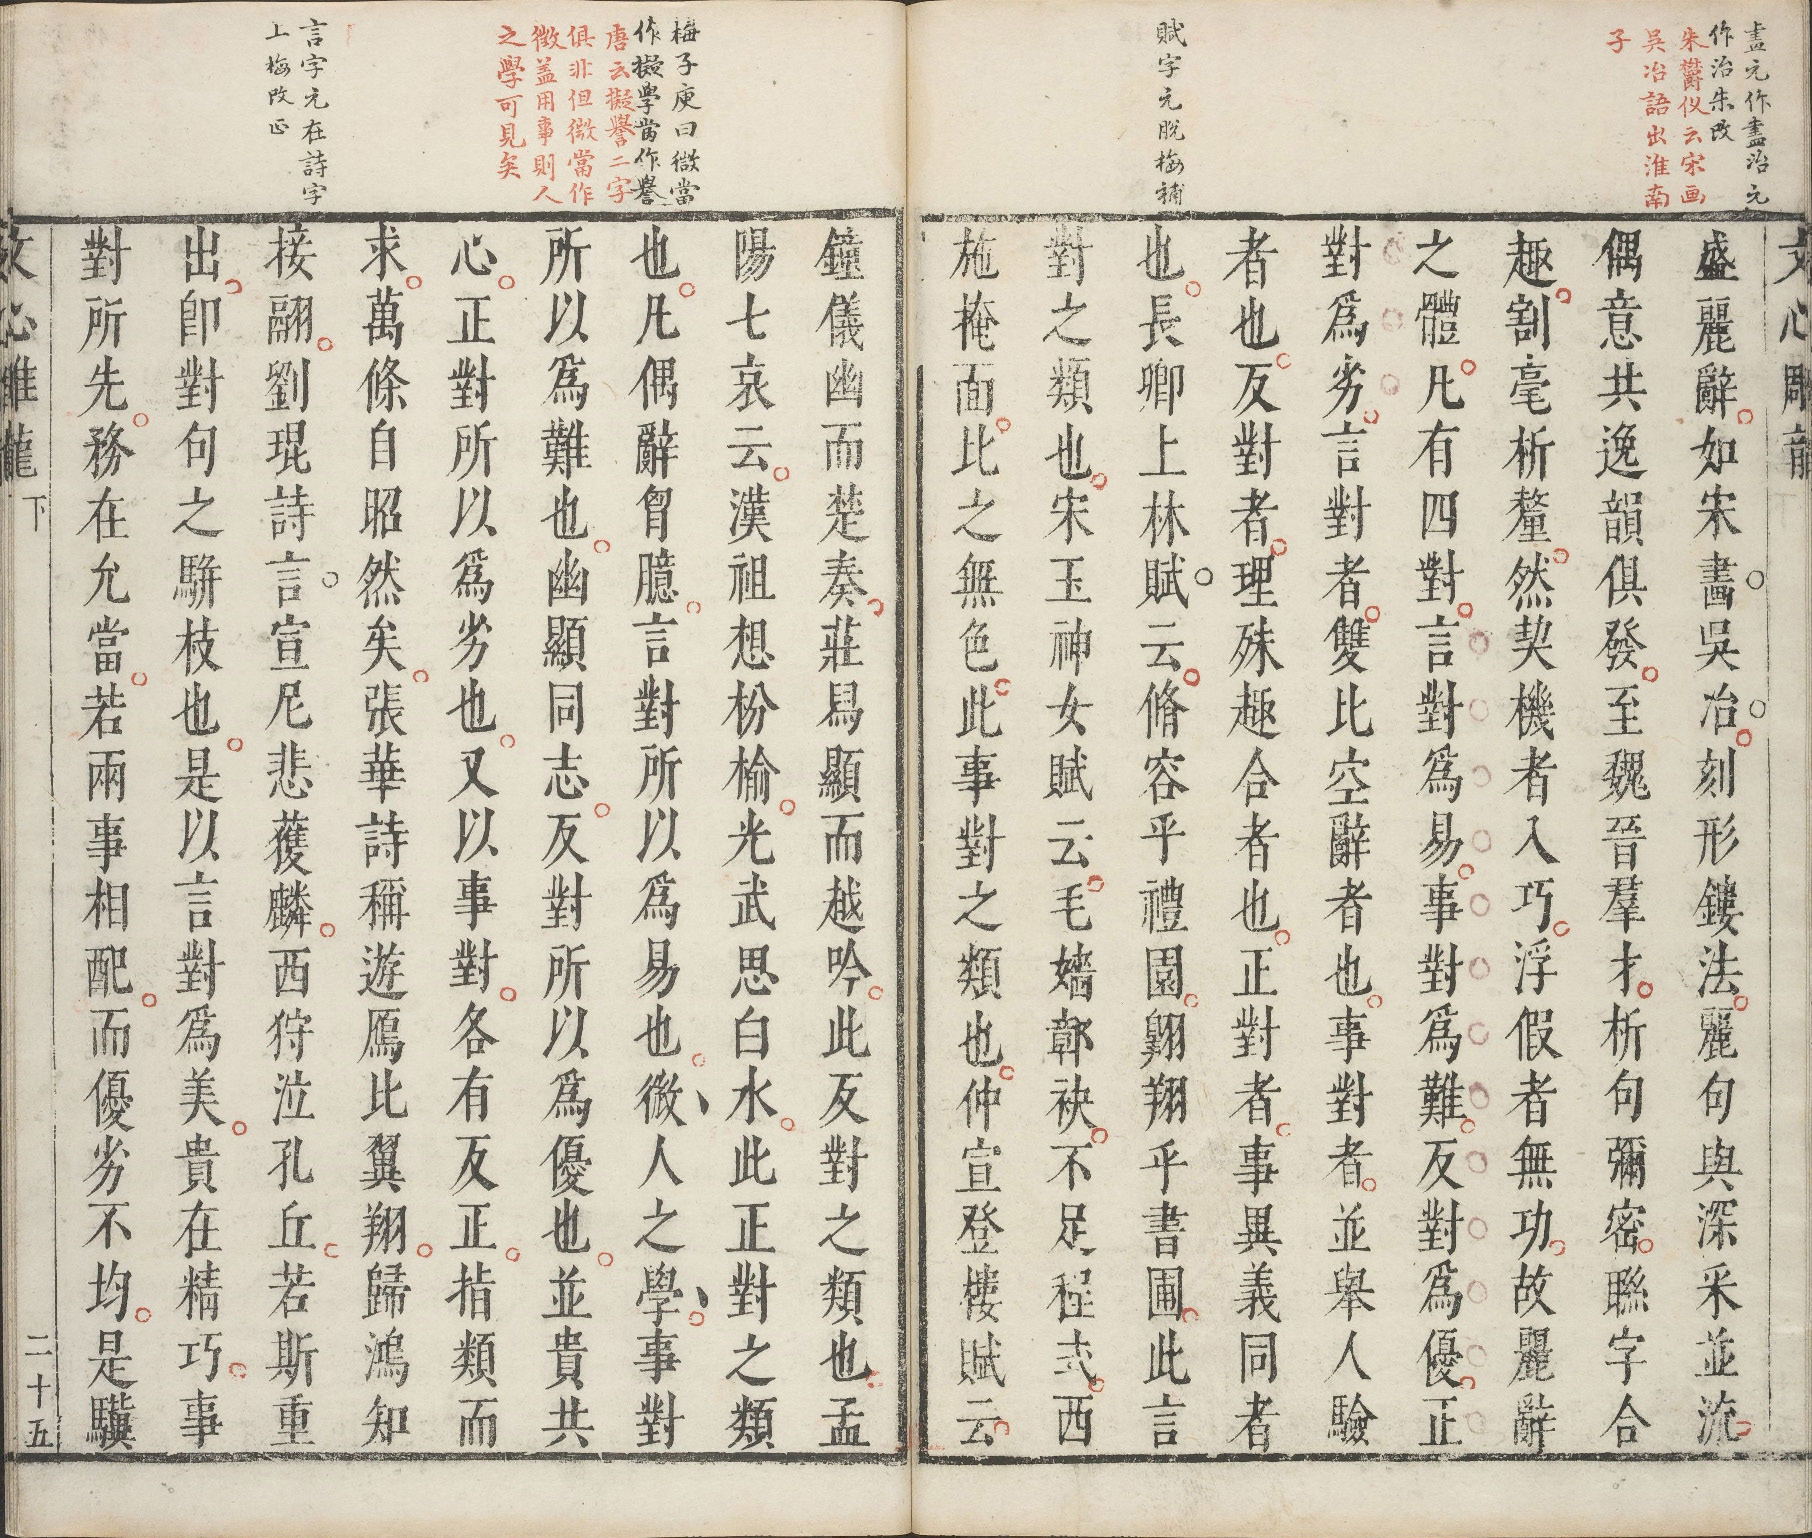 盡元作畫冶元
作治朱改
朱欝仪云宋画
吳冶語出淮南
子
賦字元脫梅補
文心雕龍
盛麗辭如宋畫吳冶刻形鏤法麗句與深采並流
偶意共逸韻俱發至魏晉羣才析句彌密聮字合
趣割毫析釐然契機者入巧浮假者無功故麗辭
之體凡有四對言對爲易事對爲難反對爲優正
對爲劣言對者雙比空辭者也事對者並舉人驗
者也反對者理殊趣合者也正對者事異義同者
也長卿上林賦云脩容乎禮園翺翔乎書圃此言
對之類也宋玉神女賦云毛嬙鄣袂不足程式西
施掩面比之無色此事對之類也仲宣登樓賦云
梅子庾曰微當
作擬學當作譽
唐云擬譽二字
俱非但微當作
徵盖用事則人
之學可見矣
言字元在詩字
上梅改正
鐘儀幽而楚奏莊舄顯而越吟此反對之類也孟
陽七哀云漢祖想枌榆光武思白水此正對之類
也凡偶辭胷臆言對所以爲易也微人之學事對
所以爲難也幽顯同志反對所以爲優也並貴共
心正對所以爲劣也又以事對各有反正指類而
求萬條自昭然矣張華詩稱遊鴈比翼翔歸鴻知
接翮劉琨詩言宣尼悲獲麟西狩泣孔丘若斯重
出卽對句之駢枝也是以言對爲美貴在精巧事
對所先務在允當若兩事相配而優劣不均是驥
文心雕龍 下 二十五